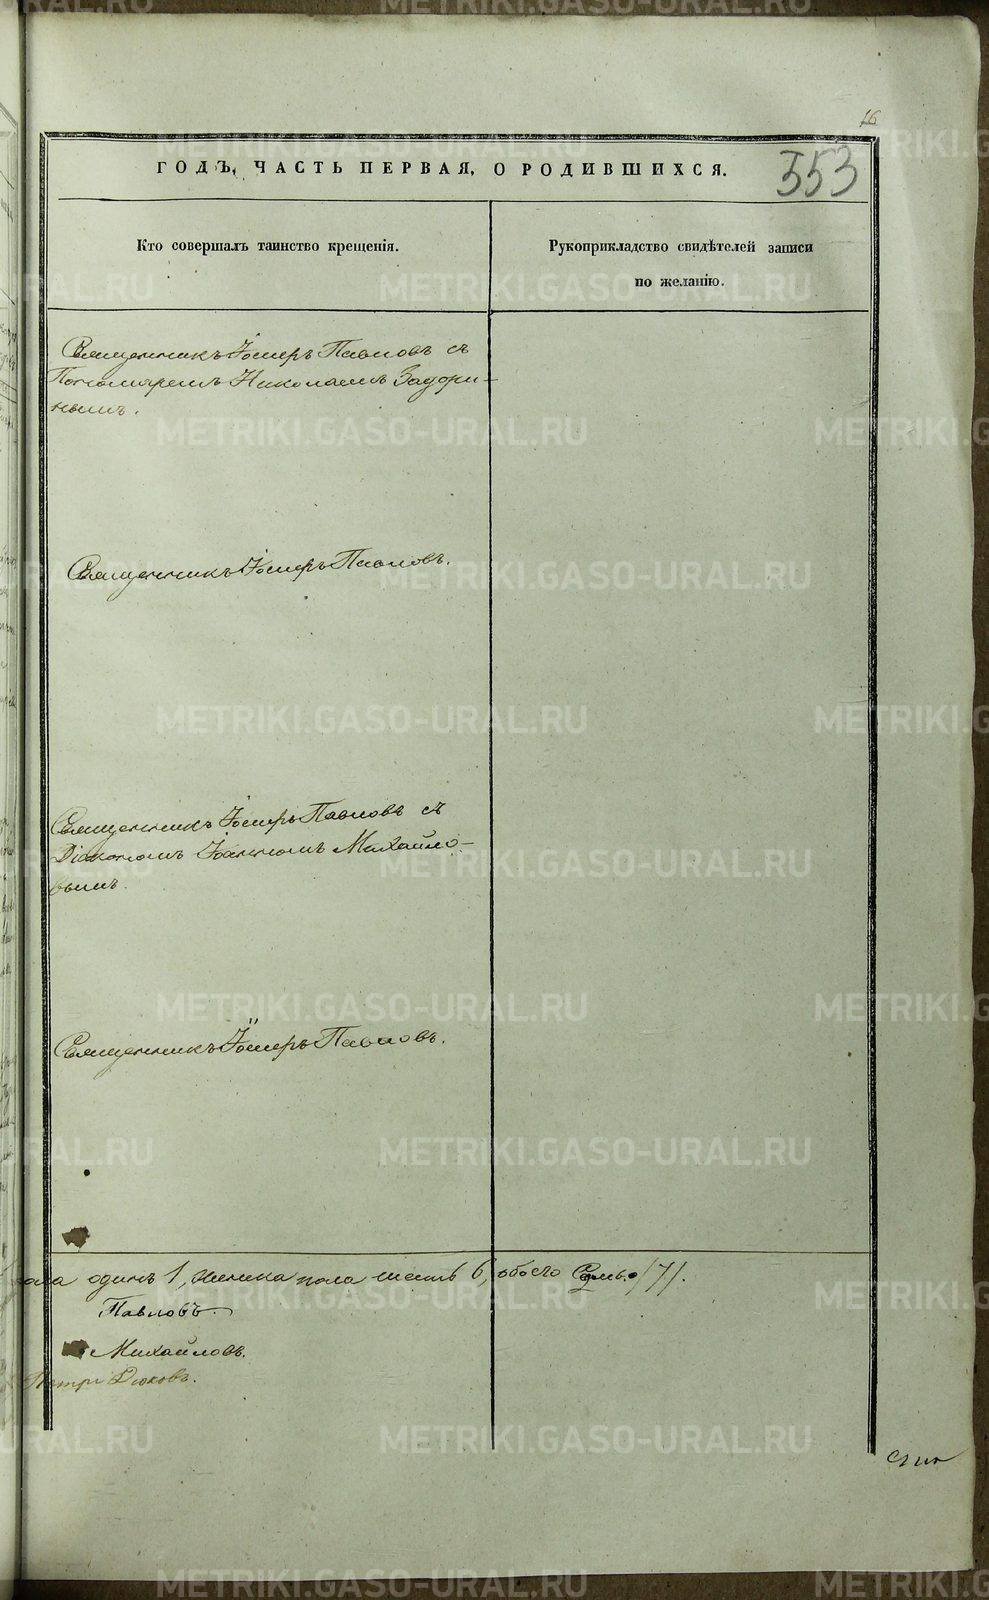 16
ГОДЪ, ЧАСТЬ ПЕРВАЯ, О РОДИВШИХСЯ.
353
Кто совершалъ таинство крещенія.
Рукоприкладство свидѣтелей записи
по желанію.
Священникъ Іосифъ Павловъ съ
Пономаремъ Николаемъ Задори-
нымъ.
Священникъ Іосифъ Павловъ.
Священникъ Іосифъ Павловъ съ
Діакономъ Іоанномъ Михайло-
вымъ.
Священникъ Іосифъ Павловъ.
пола одинъ 1, женска пола шесть 6, обоего Семь /7/.
Павловъ.
Михайловъ.
Петръ Дюковъ.
METRIKI.GASO-URAL.RU